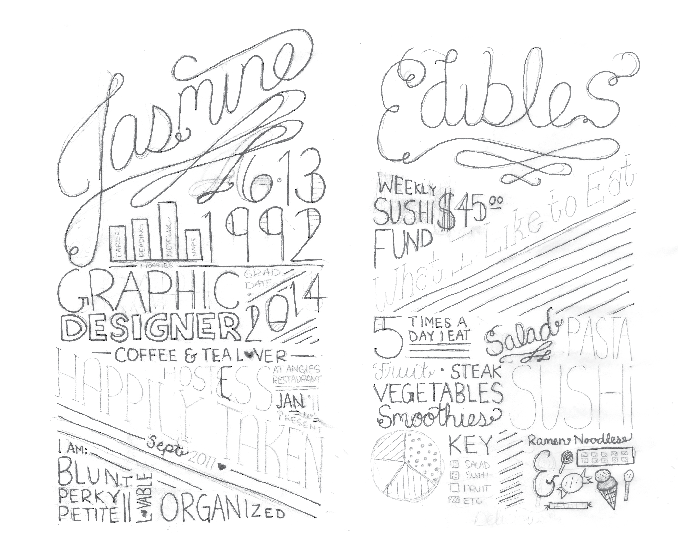 Jasmine
6·13
1992
GRAPHIC
DESIGNER
GRAD
DATE
2014
COFFEE & TEA LVER
HAPPILY
HOSTESS
RESTAURANT
JAN
PRESENT
TAKEN
Sept 2011
I AM:
BLUNT
PERKY
PETITE
LVABLE
ORGANIZED
Edibles
WEEKLY
SUSHI $45⁰⁰
FUND
What I Like to Eat
5 TIMES A
DAY I EAT
Salad PASTA
Fruit · STEAK
VEGETABLES
SUSHI
Smoothies
KEY
SALAD
SUSHI
FRUIT
ETC
Ramen Noodles